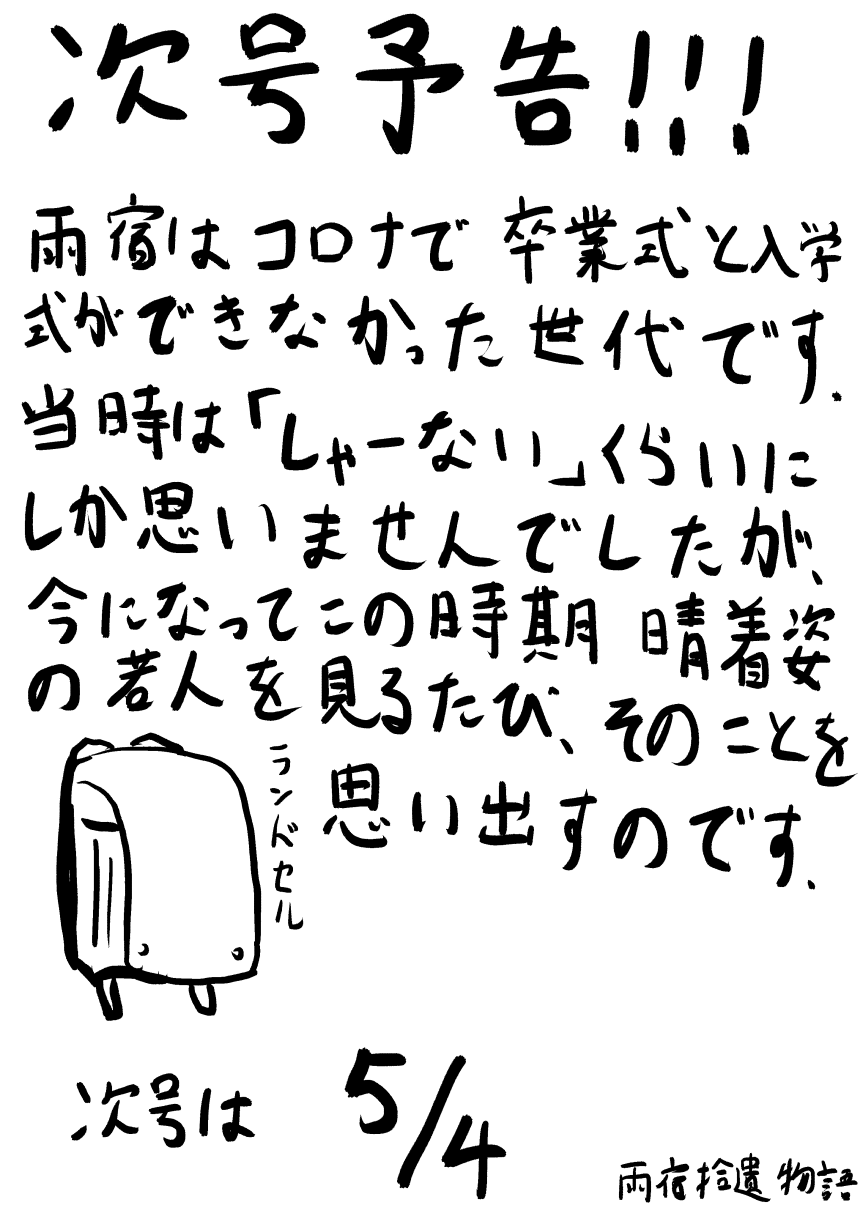 次号予告!!!
雨宿はコロナで卒業式と入学
式ができなかった世代です.
当時は「しゃーない」くらいに
しか思いませんでしたが、
今になってこの時期 晴着姿
の若人を見るたび、そのことを
思い出すのです.
ランドセル
次号は 5/4
雨宿拾遺物語